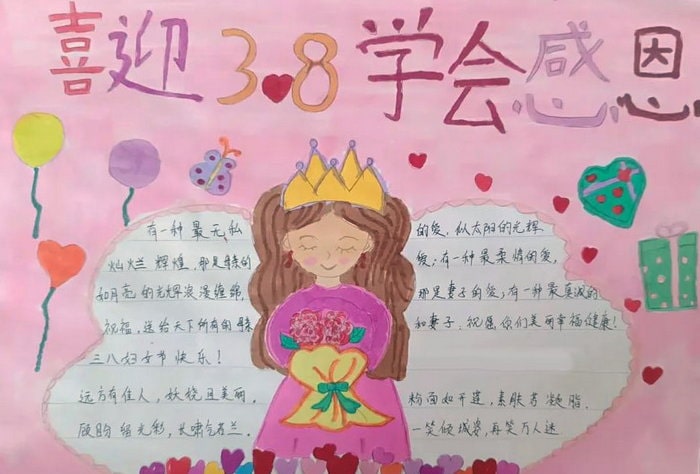 喜迎3.8学会感恩
有一种最无私的爱，似太阳的光辉
灿烂辉煌，那是母亲的爱；有一种最柔情的爱，
如月亮的光辉浪漫缠绵，那是妻子的爱；有一种最真诚的
祝福，送给天下所有的母亲和妻子，祝愿你们美丽幸福健康！
三八妇女节快乐！
远方有佳人，妖娆且美丽，粉面如开莲，素肤若凝脂，
顾盼留光彩，长啸气若兰。一笑倾城姿，再笑万人迷